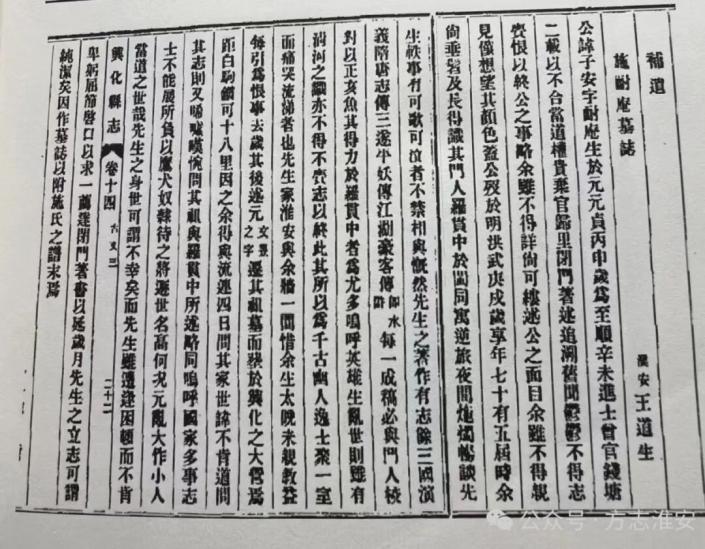 補遺
施耐庵墓誌
淮安王道生
公諱子安字耐庵生於元元貞丙申歲爲至順辛未進士曾官錢塘
二載以不合當道權貴棄官歸里閉門著述追溯舊聞鬱鬱不得志
齎恨以終公之事略余雖不得詳尚可縷述公之面目余雖不得親
見僅想望其顏色蓋公歿於明洪武庚戌歲享年七十有五屆時余
尚垂髫及長得識其門人羅貫中於閩同寓逆旅夜間炧燭暢談先
生軼事有可歌可泣者不禁相與慨然先生之著作有志餘三國演
義隋唐志傳三遂平妖傳江湖豪客傳卽水滸每一成稿必與門人校
對以正亥魚其得力於羅貫中者爲尤多嗚呼英雄生亂世則雖有
淸河之識亦不得不齎志以終此其所以爲千古幽人逸士聚一室
而痛哭流涕者也先生家淮安與余牆一間惜余生太晚未親敎益
每引爲恨事去歲其後述元文昱之字遷其祖墓而葬於興化之大營焉
距白駒鎮可十八里因之余得與流連四日問其家世諱不肯道問
其志則又唏噓嘆惋問其祖與羅貫中所述略同嗚呼國家多事志
士不能展所負以鷹犬奴隸待之將遯世名高何況元亂大作小人
當道之世哉先生之身世可謂不幸矣而先生雖遭逢困頓而不肯
興化縣志
卷十四
二十二
卑躬屈節啓口以求一薦遂閉門著書以延歲月先生之立志可謂
純潔矣因作墓誌以附施氏之譜末焉
公众号·方志淮安